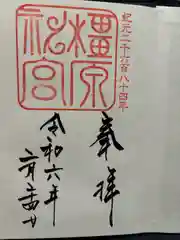 紀元二千六百八十四年
橿原
神宮
奉拝
令和六年
二月